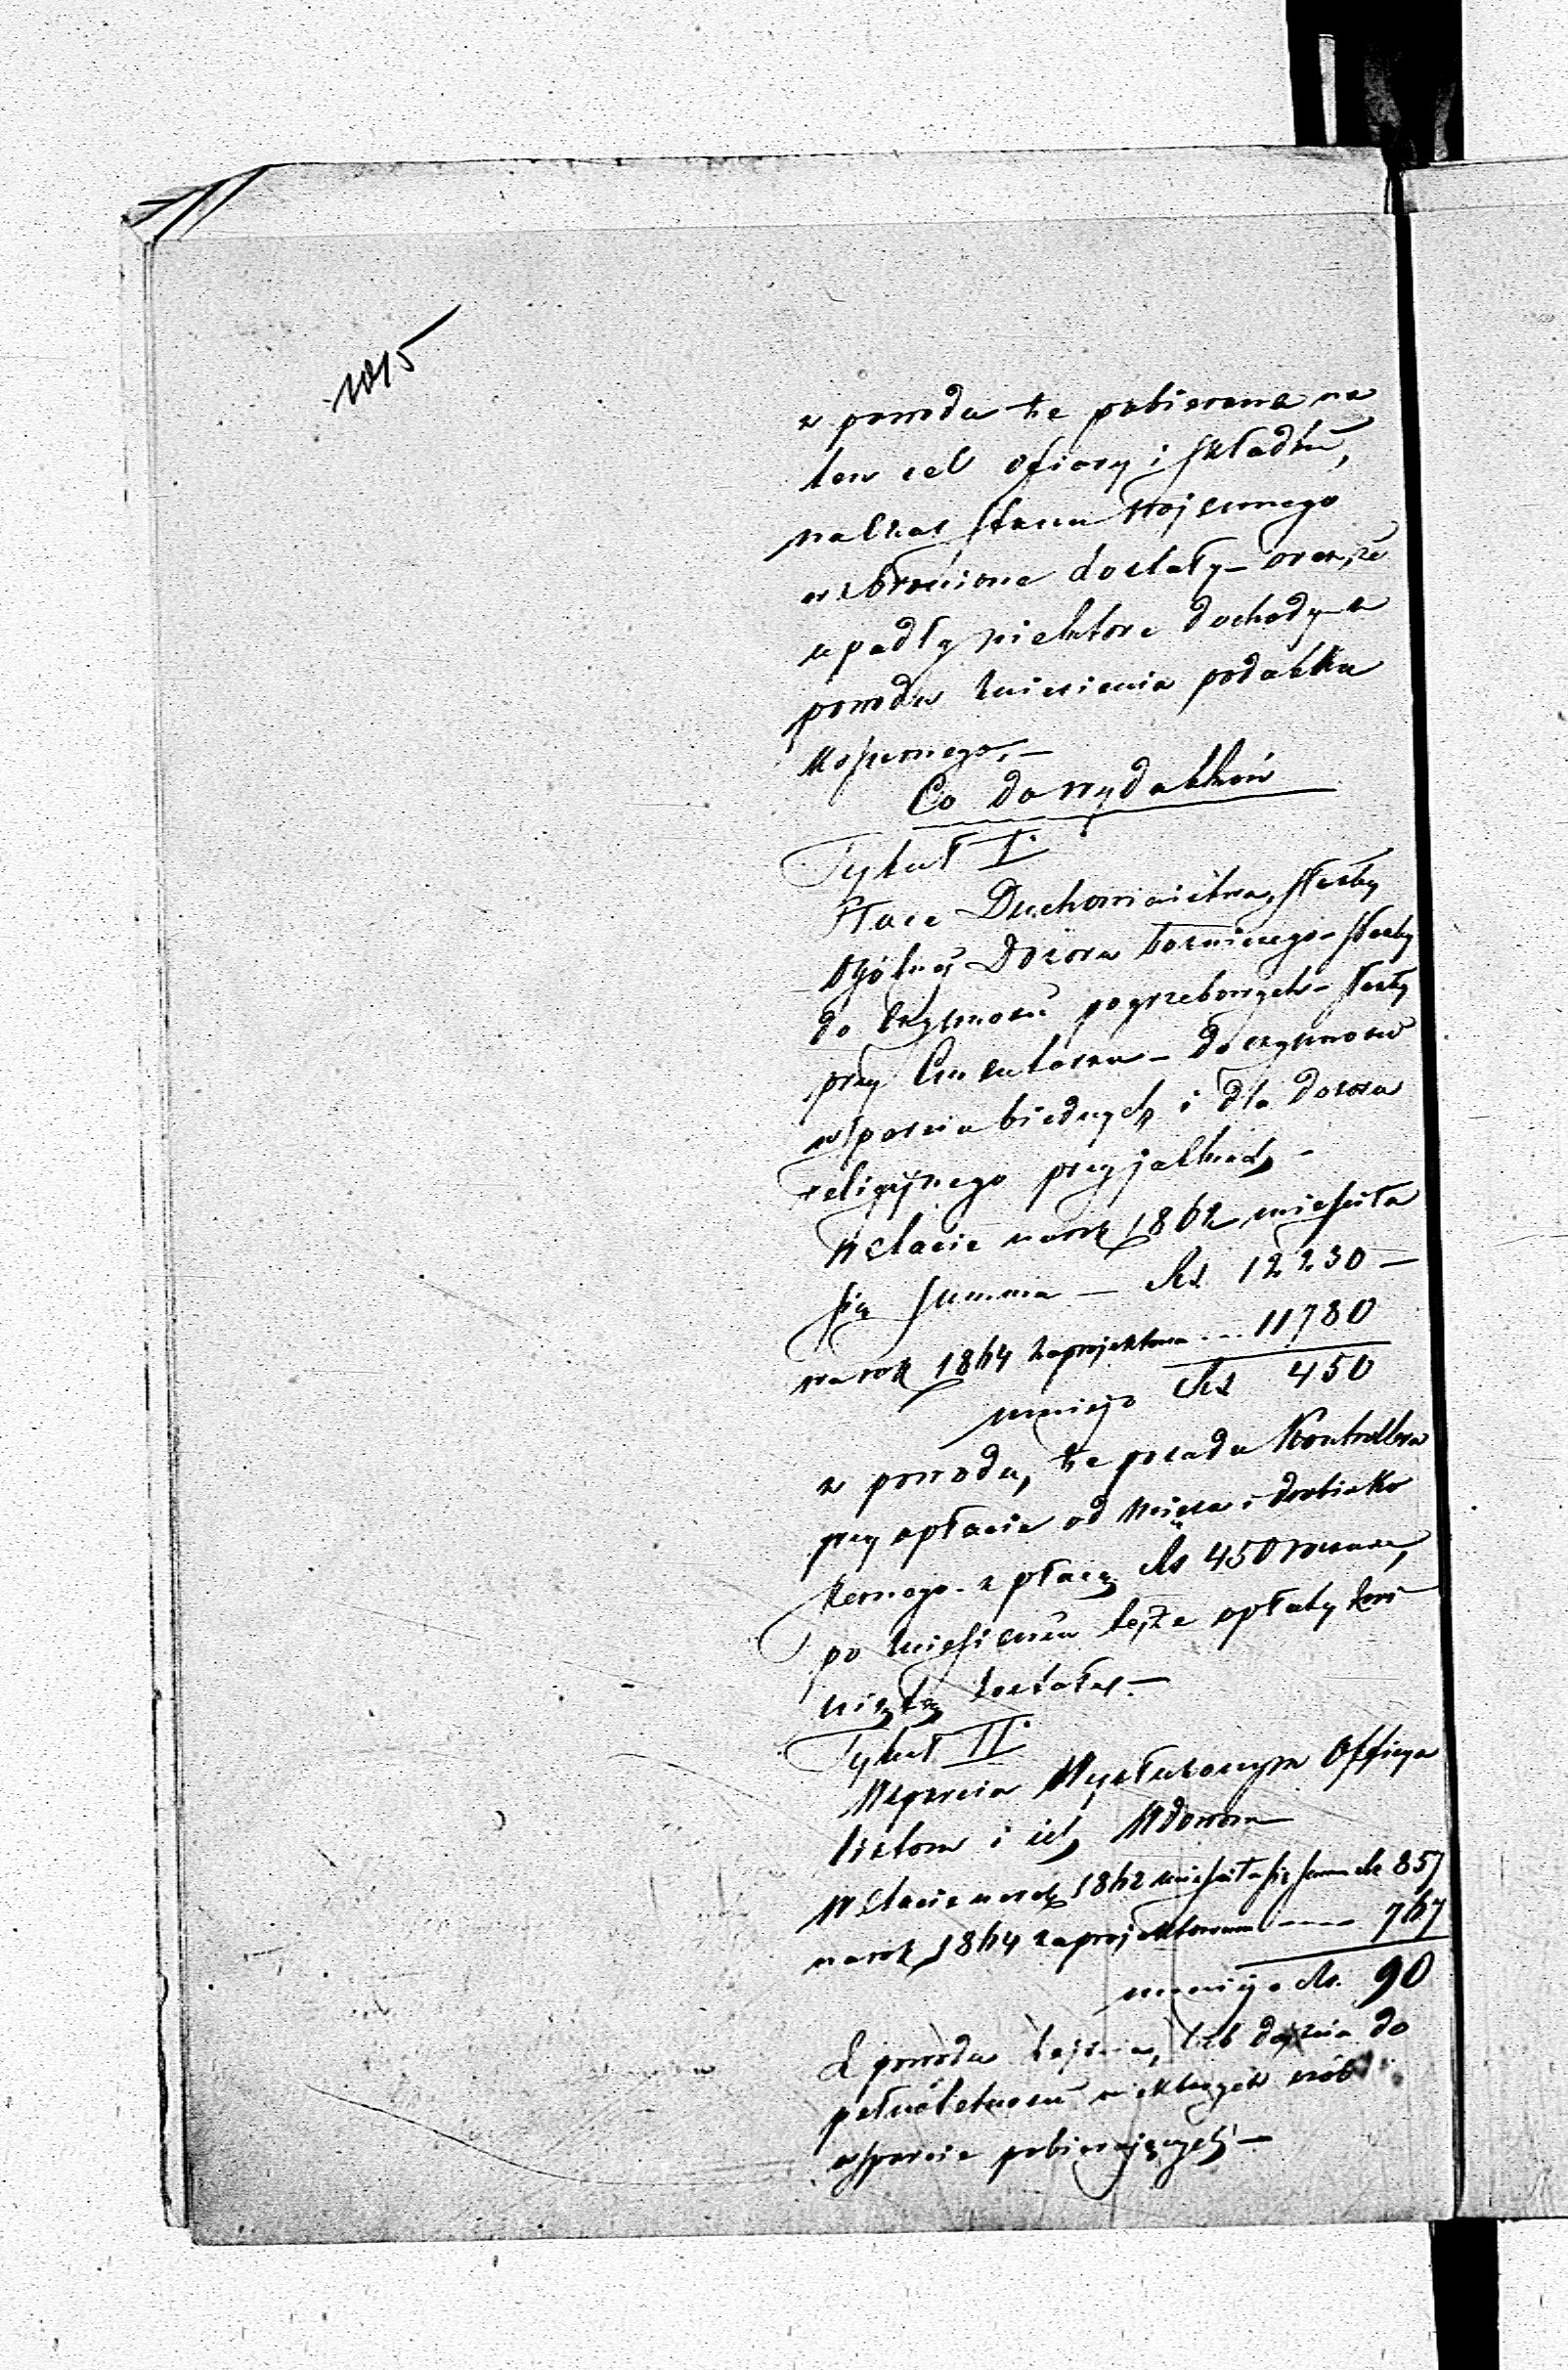 1015
z powodu że pobierane na
ten cel ofiary i składki,
na czas stanu wojennego
wzbronione zostały – oraz, że
upadły niektóre dochody z
powodu zniesienia podatku
koszernego. –
Co do wydatków
Tytuł I.
Płace Duchowieństwa, służby
Ogólnej Dozoru Bożniczego – służby
do czynności pogrzebowych – służby
przy Cmentarzu – do czynności
wsparcia biednych, i dla dozoru
religijnego przy jatkach –
W etacie na rok 1862 mieściła
się summa — Rs. 12230 —
na rok 1864 zaprojektowa ... 11780
mniej o Rs 450
z powodu, że posada Kontrollera
przy opłacie od mięsa i drobiu ko
szernego – z płacą Rs 450 roczną,
po zniesieniu tejże opłaty zwi
niętą została. —
Tytuł II.
Wsparcia Wysłużonym Officya
listom i ich Wdowom
W etacie na rok 1862 mieściła się summa Rs 857
na rok 1864 zaprojektowano ---- 767
mniej o Rs. 90
Z powodu zejścia, lub dojścia do
pełnoletności niektórych osób
wsparcie pobierających —